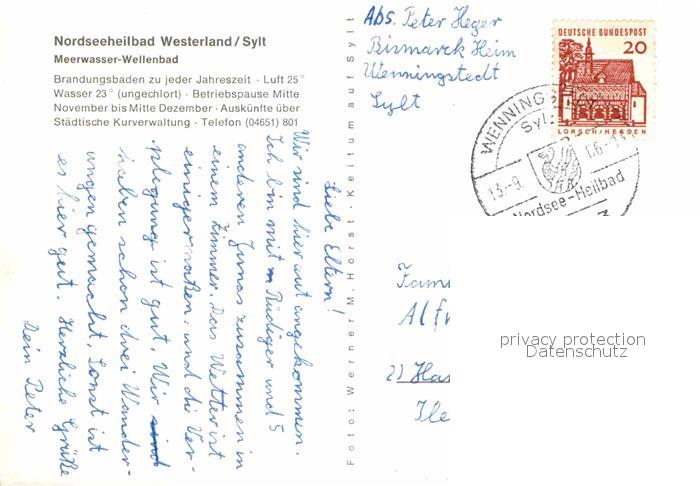 Nordseeheilbad Westerland/Sylt
Meerwasser-Wellenbad
Brandungsbaden zu jeder Jahreszeit · Luft 25°
Wasser 23° (ungechlort) · Betriebspause Mitte
November bis Mitte Dezember · Auskünfte über
Städtische Kurverwaltung · Telefon (04651) 801
Liebe Eltern!
Wir sind hier gut angekommen.
Ich bin mit Rüdiger und 5
anderen Jungs zusammen in
einem Zimmer. Das Wetter ist
einigermaßen, und die Ver-
pflegung ist gut. Wir sind
haben schon drei Wander-
ungen gemacht. Sonst ist
es hier gut. Herzliche Grüße
Dein Peter
Foto: Werner M. Horst · Keitum auf Sylt
Abs. Peter Heger
Bismarck Heim
Wenningstedt
Sylt
DEUTSCHE BUNDESPOST
20
LORSCH/HESSEN
WENNINGS
Sylt
13.-9.
66-13
Nordsee-Heilbad
Fam
Alf
Has
privacy protection
Datenschutz